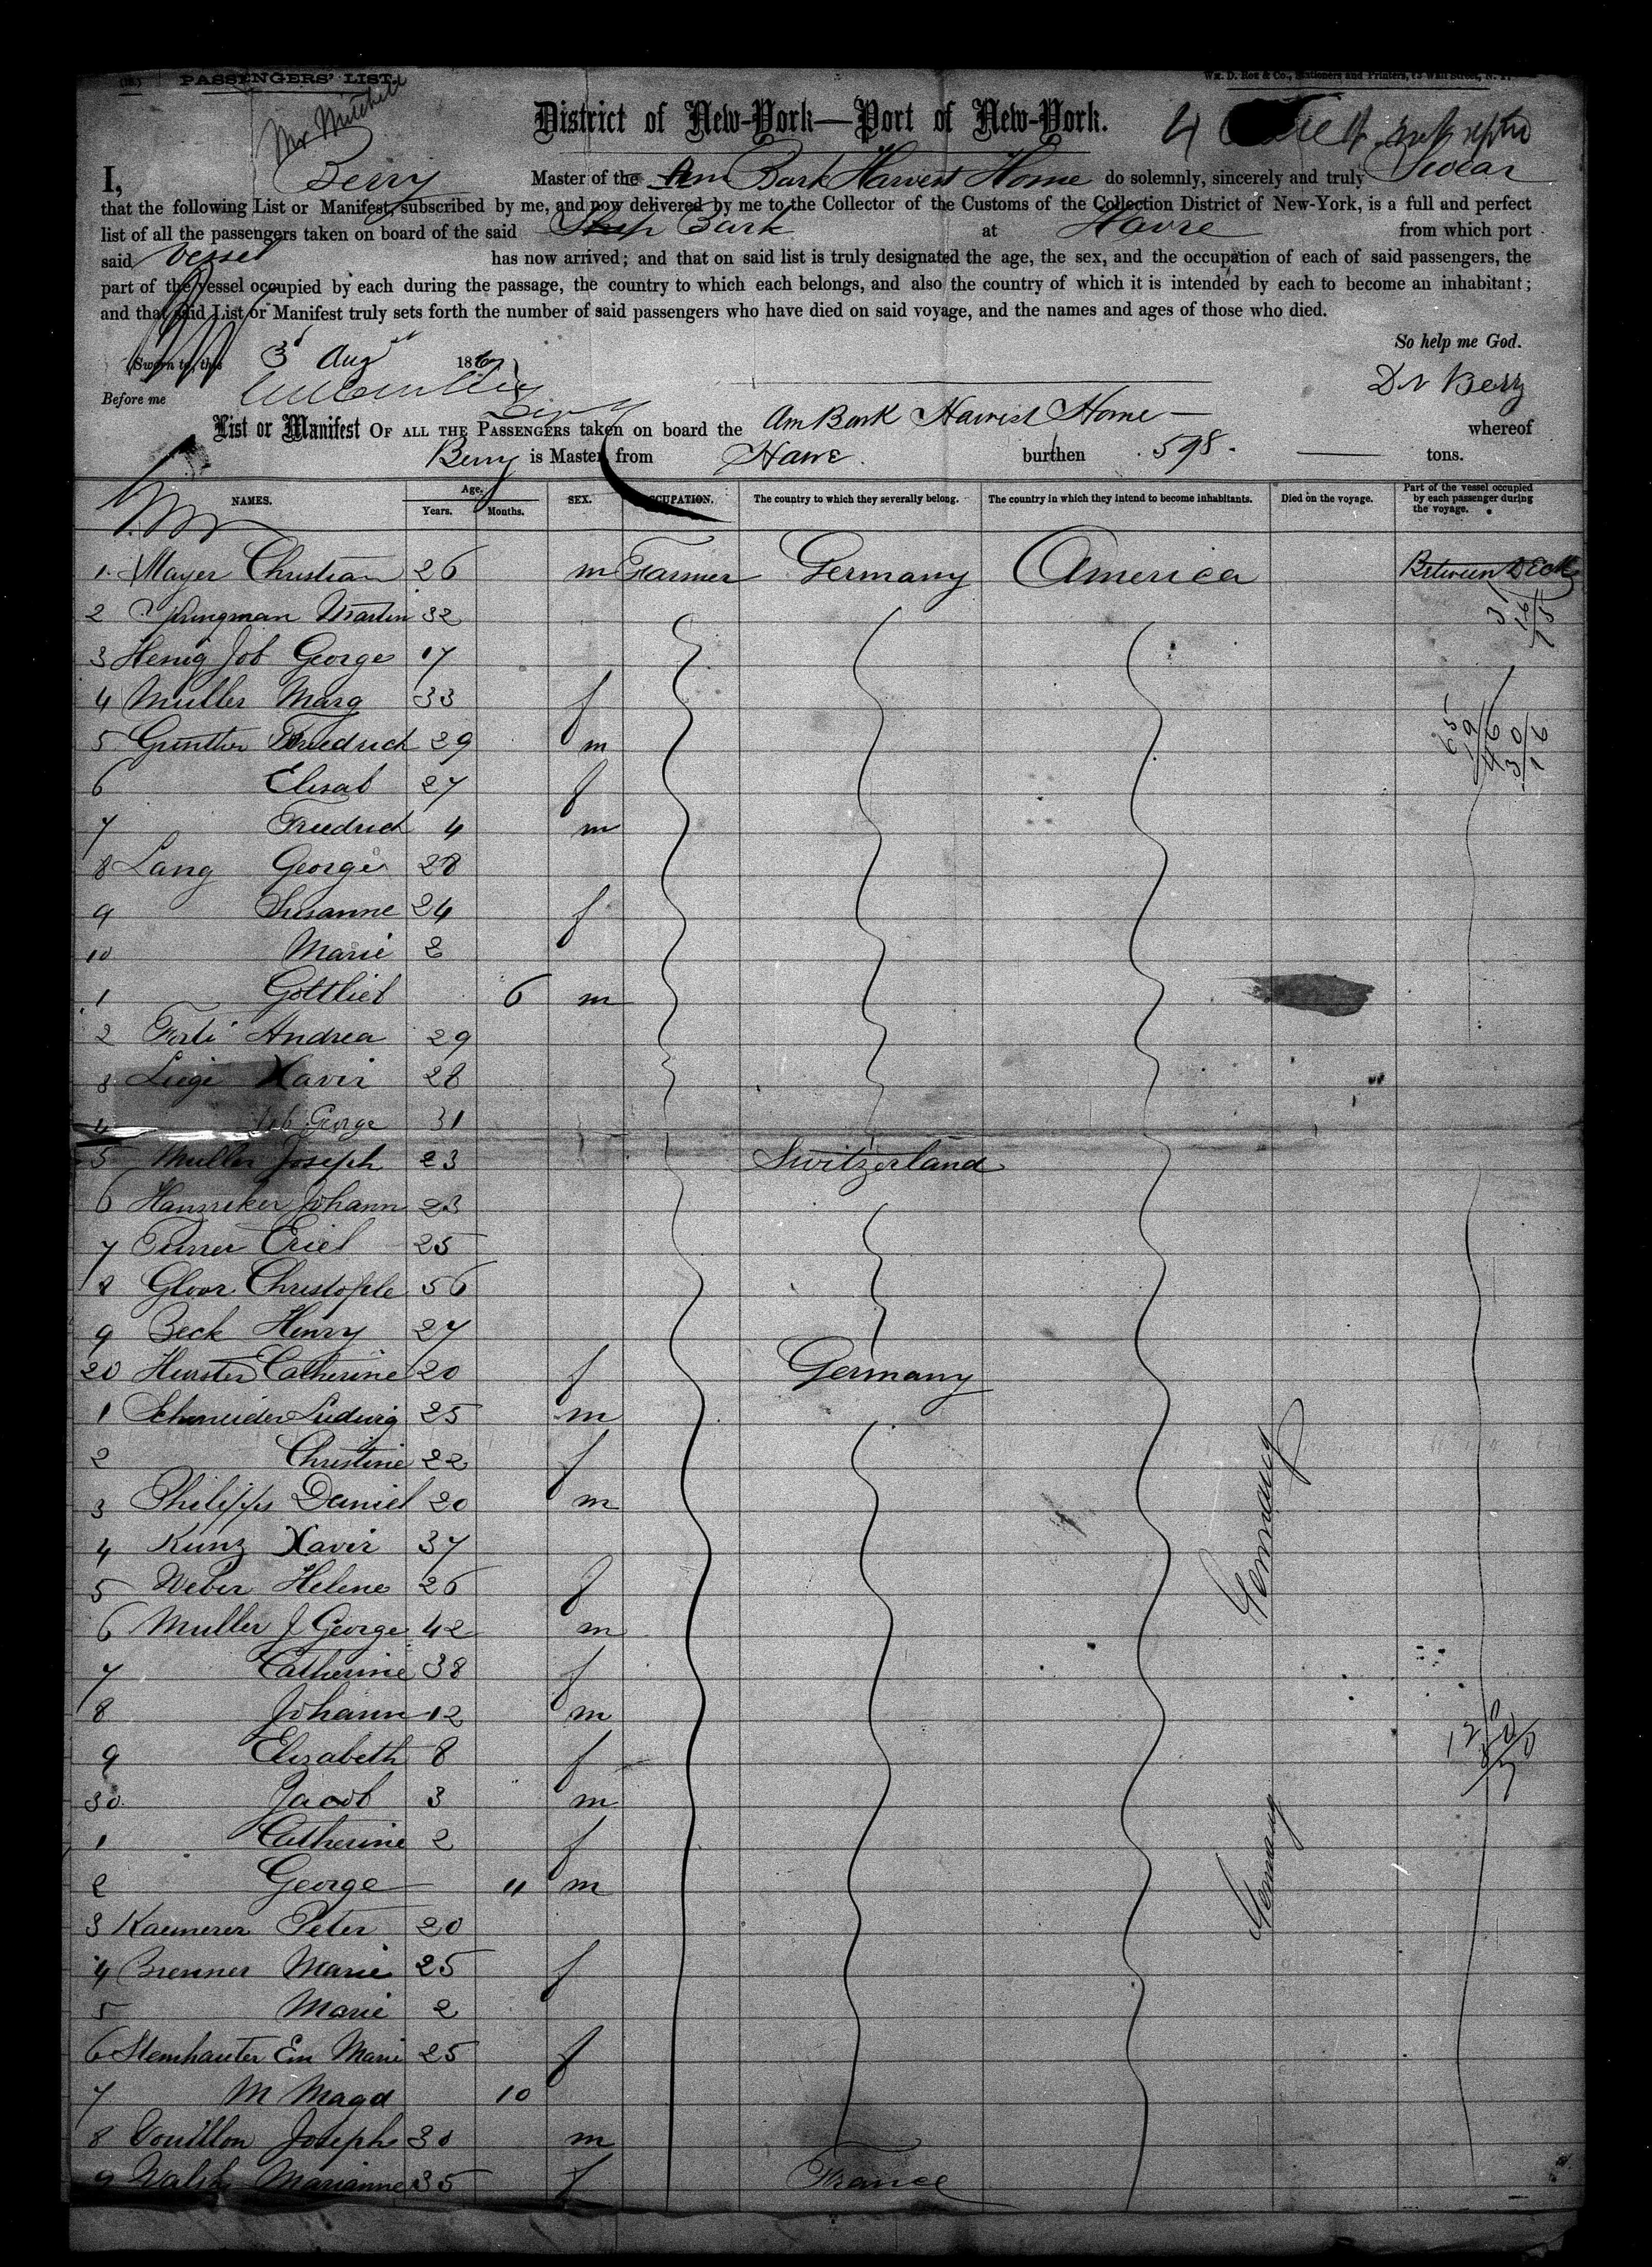 PASSENGERS' LIST.
Wm. D. Roe & Co., Stationers and Printers, 73 Wall Street, N. Y.
Mr Mitchell
District of New-York—Port of New-York.
I, Berry Master of the Am Bark Harvest Home do solemnly, sincerely and truly Swear
that the following List or Manifest, subscribed by me, and now delivered by me to the Collector of the Customs of the Collection District of New-York, is a full and perfect
list of all the passengers taken on board of the said Ship Bark at Havre from which port
said Vessel has now arrived; and that on said list is truly designated the age, the sex, and the occupation of each of said passengers, the
part of the vessel occupied by each during the passage, the country to which each belongs, and also the country of which it is intended by each to become an inhabitant;
and that said List or Manifest truly sets forth the number of said passengers who have died on said voyage, and the names and ages of those who died.
So help me God.
Sworn to, this 3 Aug 186
D N Berry
Before me
List or Manifest OF ALL THE PASSENGERS taken on board the Am Bark Harvest Home whereof
Berry is Master, from Havre burthen 598. tons.
NAMES. Age. Years. Months. SEX. OCCUPATION. The country to which they severally belong. The country in which they intend to become inhabitants. Died on the voyage. Part of the vessel occupied by each passenger during the voyage.
1. Mayer Christian 26 m Farmer Germany America Between Deck
2 Martin 32
3 Henig Job George 17
4 Muller Marg 33 f
5 Gunther Friedrich 29 m
6 Elisab 27 f
7 Friedrich 4 m
8 Lang George 28
9 Susanne 24 f
10 Marie 2
1 Gottlieb 6 m
2 Forti Andrea 29
3 Liege Xavir 28
4 George 31
5 Muller Joseph 23 Switzerland
6 Hanneker Johann 23
7 25
8 Gloor Christople 56
9 Beck Henry 27
20 Hurster Catherine 20 f Germany
1 Schneider Ludwig 25 m
2 Christine 22 f
3 Philipps Daniel 20 m
4 Kunz Xavir 37
5 Weber Helene 26 f
Germany
6 Muller J George 42 m
7 Catherine 38 f
8 Johann 12 m
9 Elizabeth 8 f
30 Jacob 3 m
1 Catherine 2 f
2 George 11 m
Germany
3 Kaemerer Peter 20
4 Brenner Marie 25 f
5 Marie 2
6 Stemhauter Em Marie 25 f
7 M Magd 10
8 Joseph 30 m
9 Marianne 35 f France